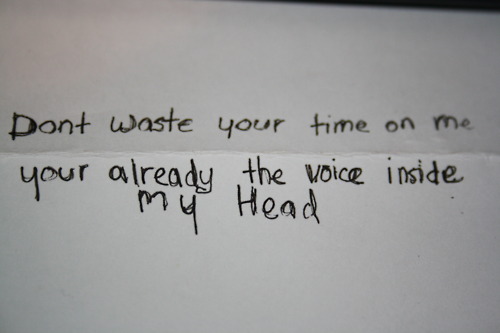 Dont waste your time on me
your already the voice inside
my Head